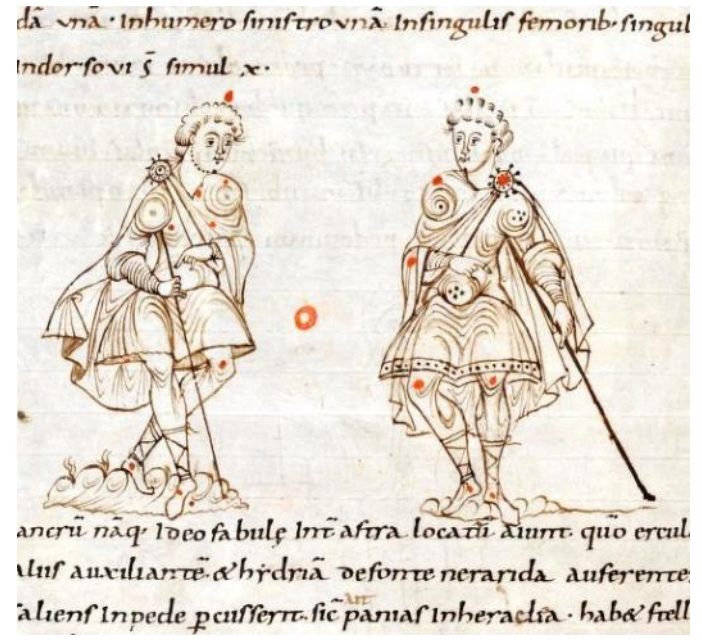 dā unā · Inhumero sinistro unā Insingulis femorib· singul
indorso vi s̄ simul x·
ancrū nāq· Ideo fabulę Int̄ astra locatū aiunt· quo ercul
aliis auxiliantē· & hydriā defonte nerarida auferente
saliens Inpede p̱cusserit· sic panias Inheraclia · hab& stell